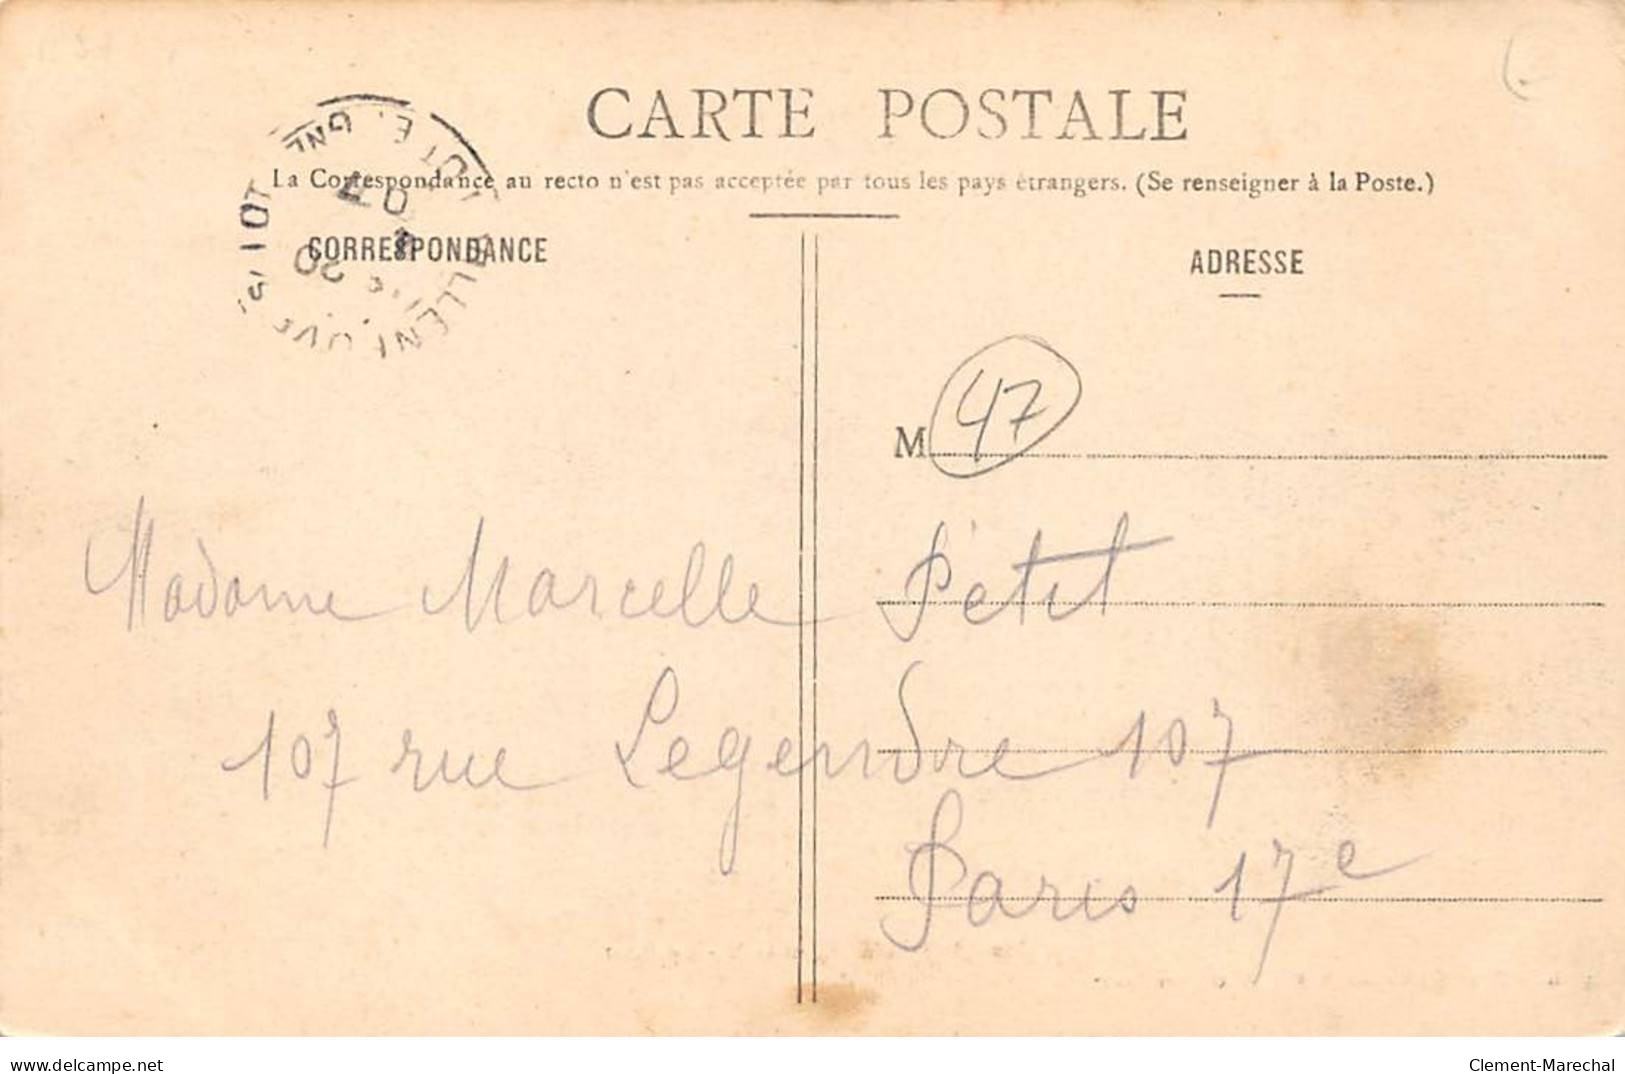 CARTE POSTALE
La Correspondance au recto n'est pas acceptée par tous les pays étrangers. (Se renseigner à la Poste.)
CORRESPONDANCE
ADRESSE
47
M
Madame Marcelle Pétit
107 rue Legendre 107
Paris 17e
delcampe.net
Clement-Marechal